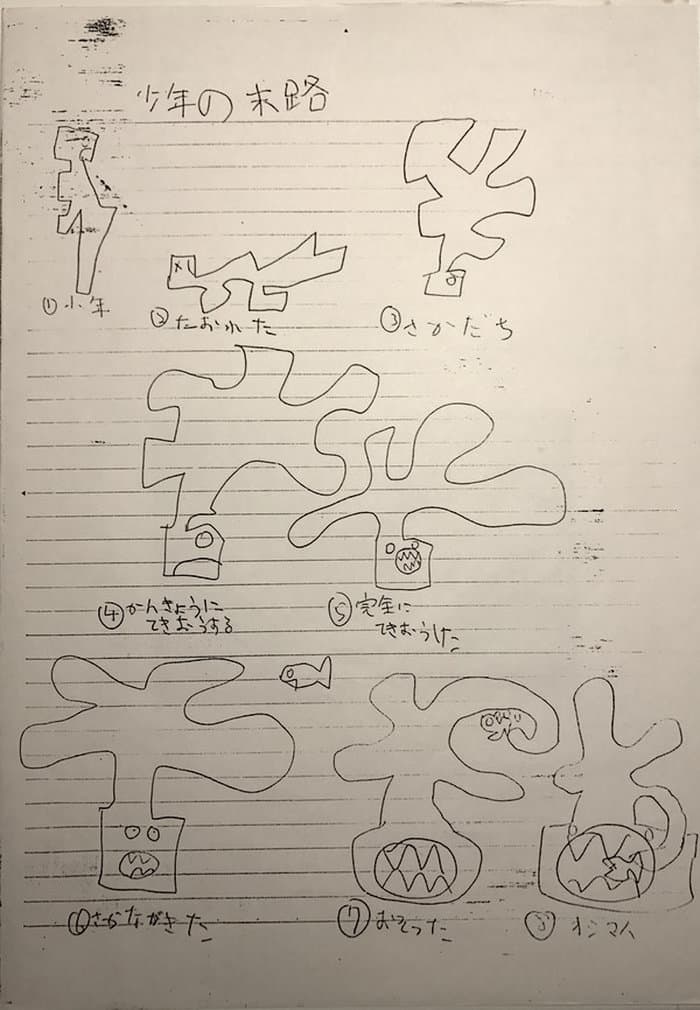 少年の末路
①少年
②たおれた
③さかだち
④かんきょうに
てきおうする
⑤完全に
てきおうした
⑥さかながきた
⑦おそった
⑧オシマイ